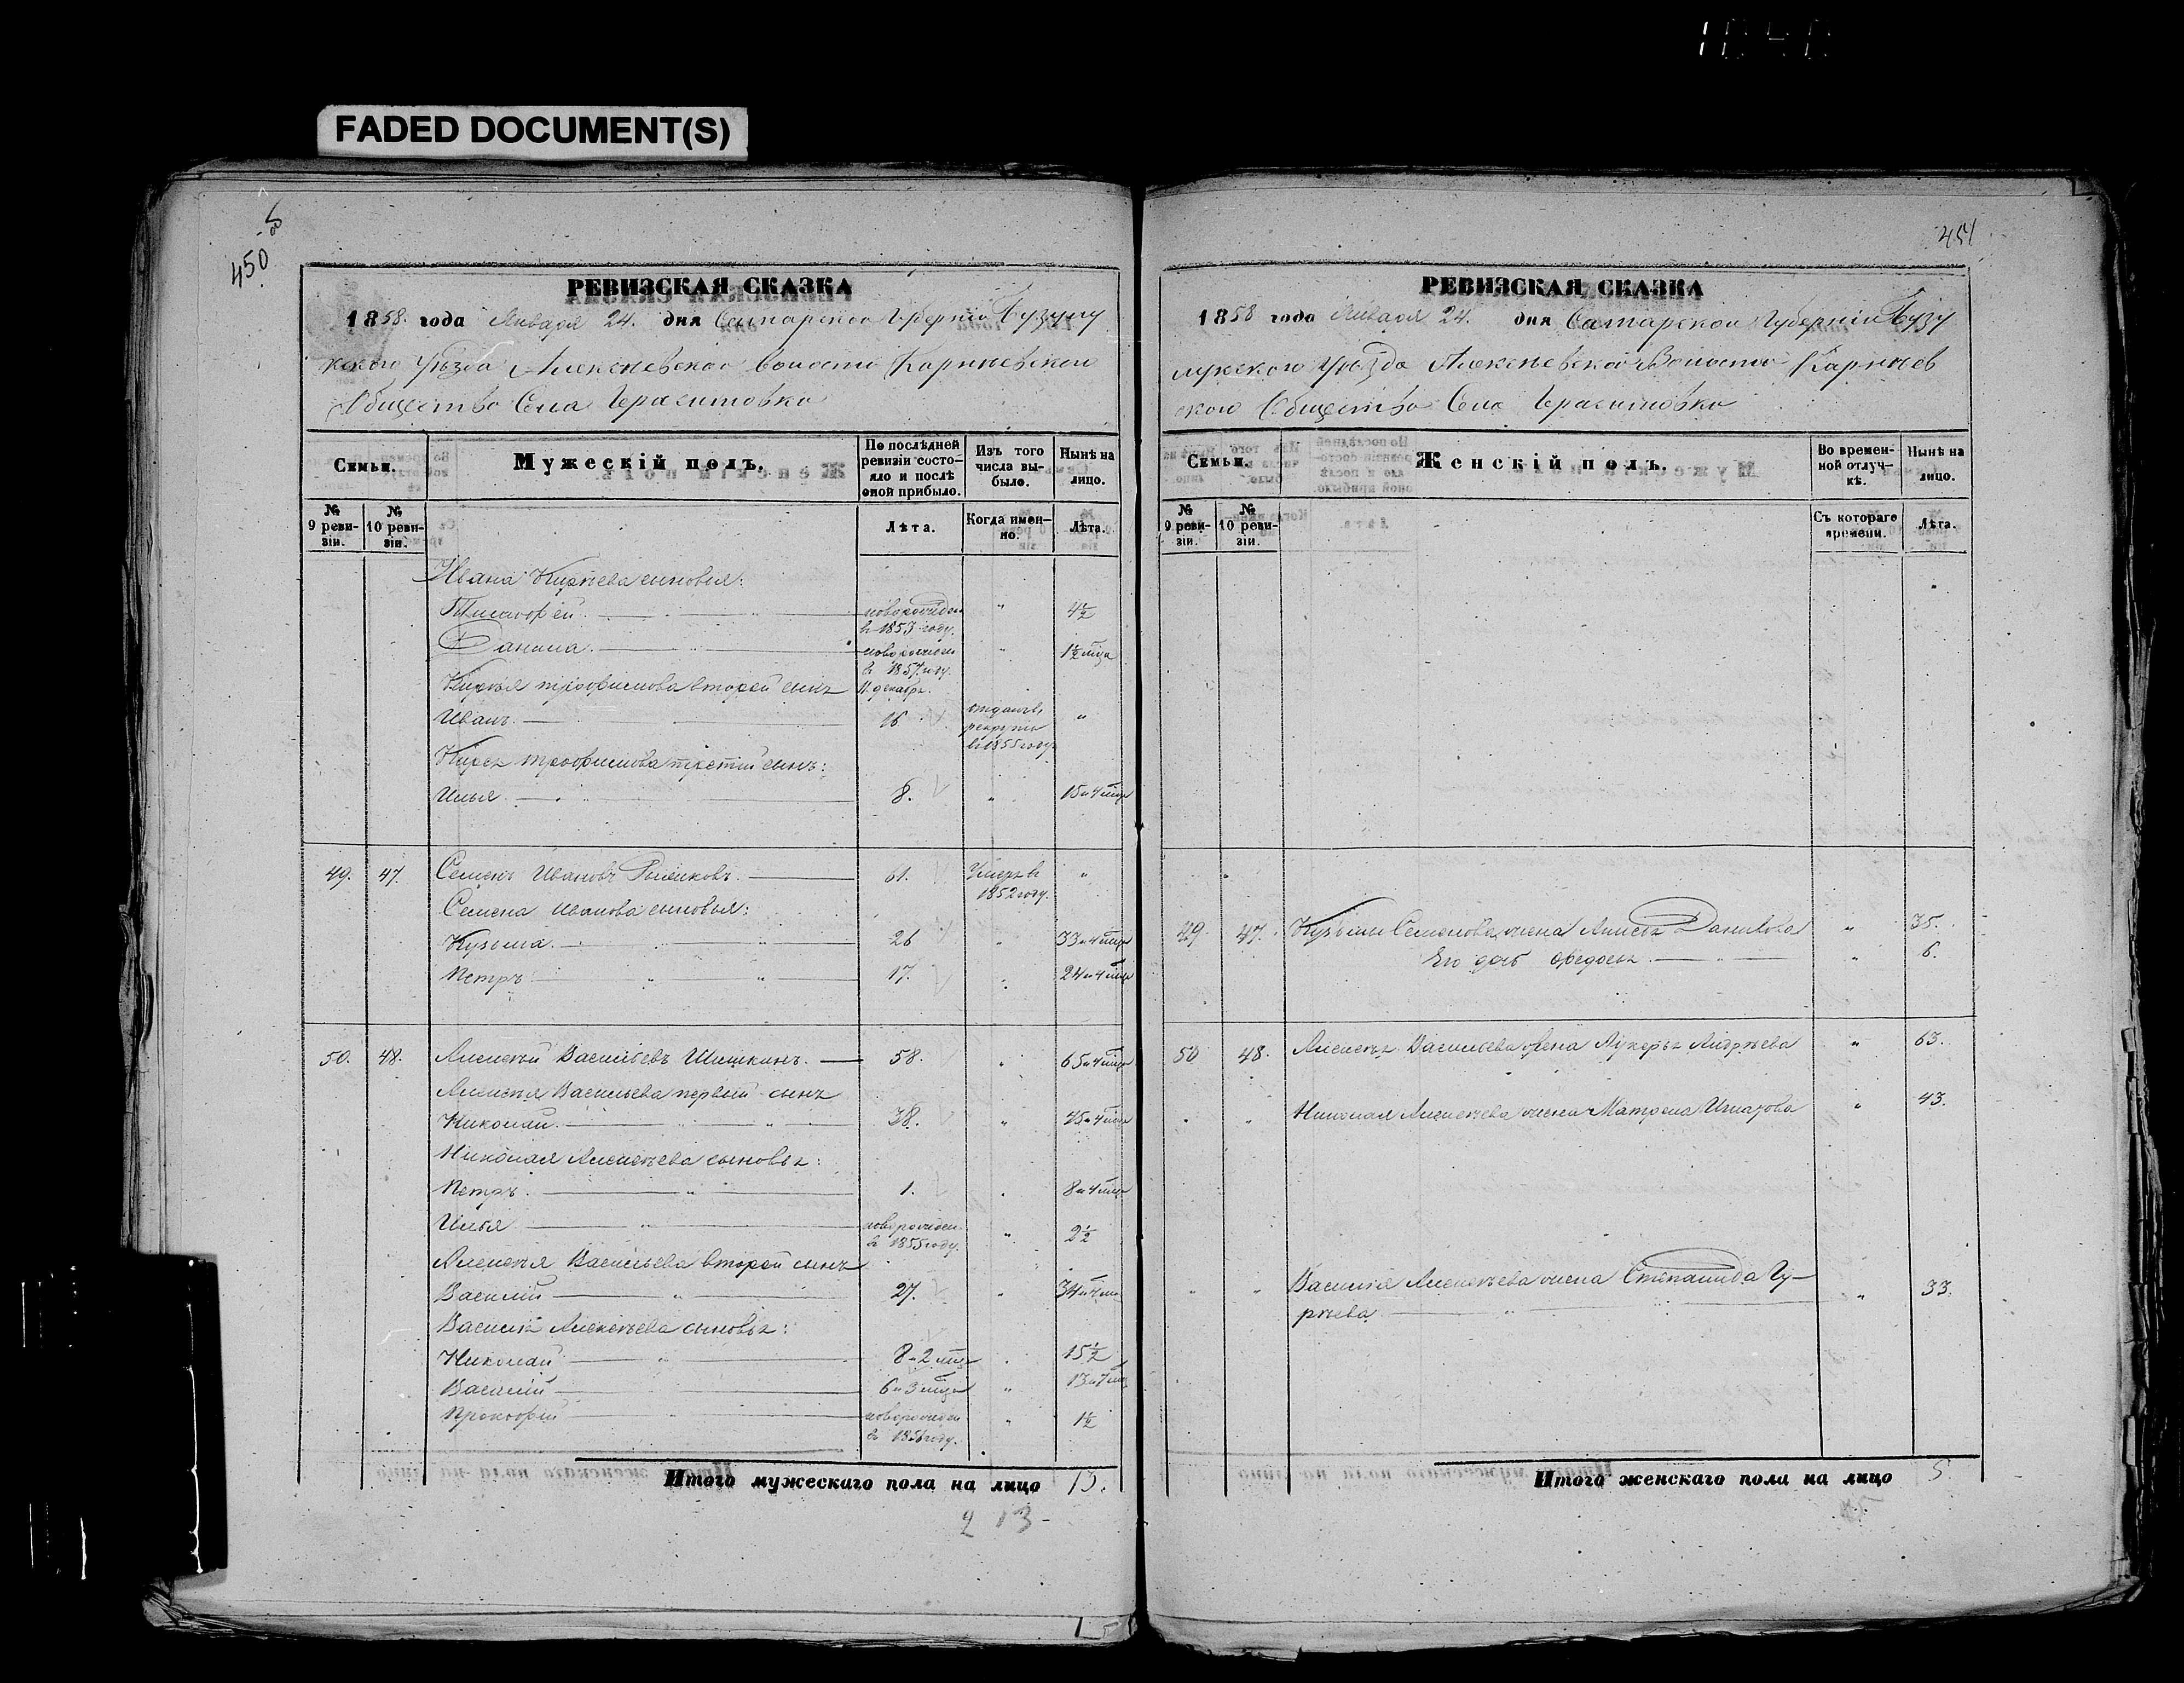 FADED DOCUMENT(S)
450 об
РЕВИЗСКАЯ СКАЗКА
1858 года Января 24. дня Самарской Губерніи Бузулу
кского Уѣзда Алексѣевской волости Карпѣевского
Общества Села Герасимовки
Семьи.
Мужескій полъ.
По послѣдней ревизіи состояло и послѣ оной прибыло.
Изъ того числа выбыло.
Нынѣ на лицо.
№ 9 ревизіи.
№ 10 ревизіи.
Лѣта.
Когда именно.
Лѣта.
Ивана Кирѣева сыновья:
Тимофей новорожден в 1853 году. " 4½
Данила. новорожден в 1857 году 11 декабр. " 1½ мца
Кирѣя трофимова второй сынъ
Иванъ 16 отданъ в рекруты в 1855 году "
Кирея трофимова третий сынъ:
Илья 8. " 15 и 4 мца
49. 47. Семенъ Ивановъ 61. Умеръ в 1852 году. "
Семена Иванова сыновья:
Кузьма 26 " 33 и 4 мца
Петръ 17. " 24 и 4 мца
50. 48. Алексѣй Васильевъ Шишкинъ. 58. " 65 и 4 мца
Алексѣя Васильева первый сынъ
Николай 38. " 45 и 4 мца
Николая Алексѣева сыновья:
Петръ. 1. " 8 и 4 мца
Илья новорожден в 1855 году. " 2½
Алексѣя Васильева второй сынъ
Василий 27. " 34 и 4 мца
Василья Алексѣева сыновья:
Николай 8 и 2 мца " 15½
Василий 6 и 3 мца " 13 и 7 мца
Прокофий новорожден в 1856 году. " 1½
Итого мужескаго пола на лицо 13.
2 13-
451
РЕВИЗСКАЯ СКАЗКА
1858 года Января 24. дня Самарской Губерніи Бузу
лукского Уѣзда Алексѣевской Волости Карпѣев
ского Общества Села Герасимовки
Семьи.
Женскій полъ.
Во временной отлучкѣ.
Нынѣ на лицо.
№ 9 ревизіи.
№ 10 ревизіи.
Съ котораго времени.
Лѣта.
49. 47. Кузьмы Семенова жена Анисья Данилова " 35.
Его дочь Федосья " 6.
50 48. Алексѣя Васильева жена Лукерья Андрѣева " 63.
" " Николая Алексѣева жена Матрена Игнатова " 43.
" " Василья Алексѣева жена Степанида Гу-
рьева " 33.
Итого женскаго пола на лицо 5